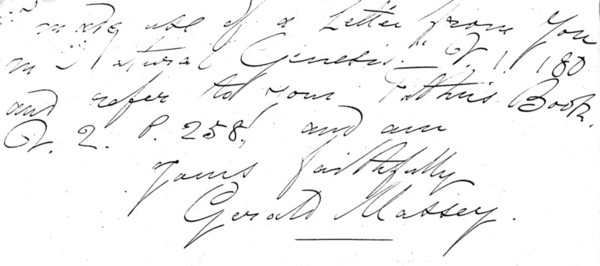 made use of a Letter from you
in "Natural Genesis" V. 1. 180
and refer to your Father's Book.
V. 2. P. 258, and am
Yours faithfully
Gerald Massey.